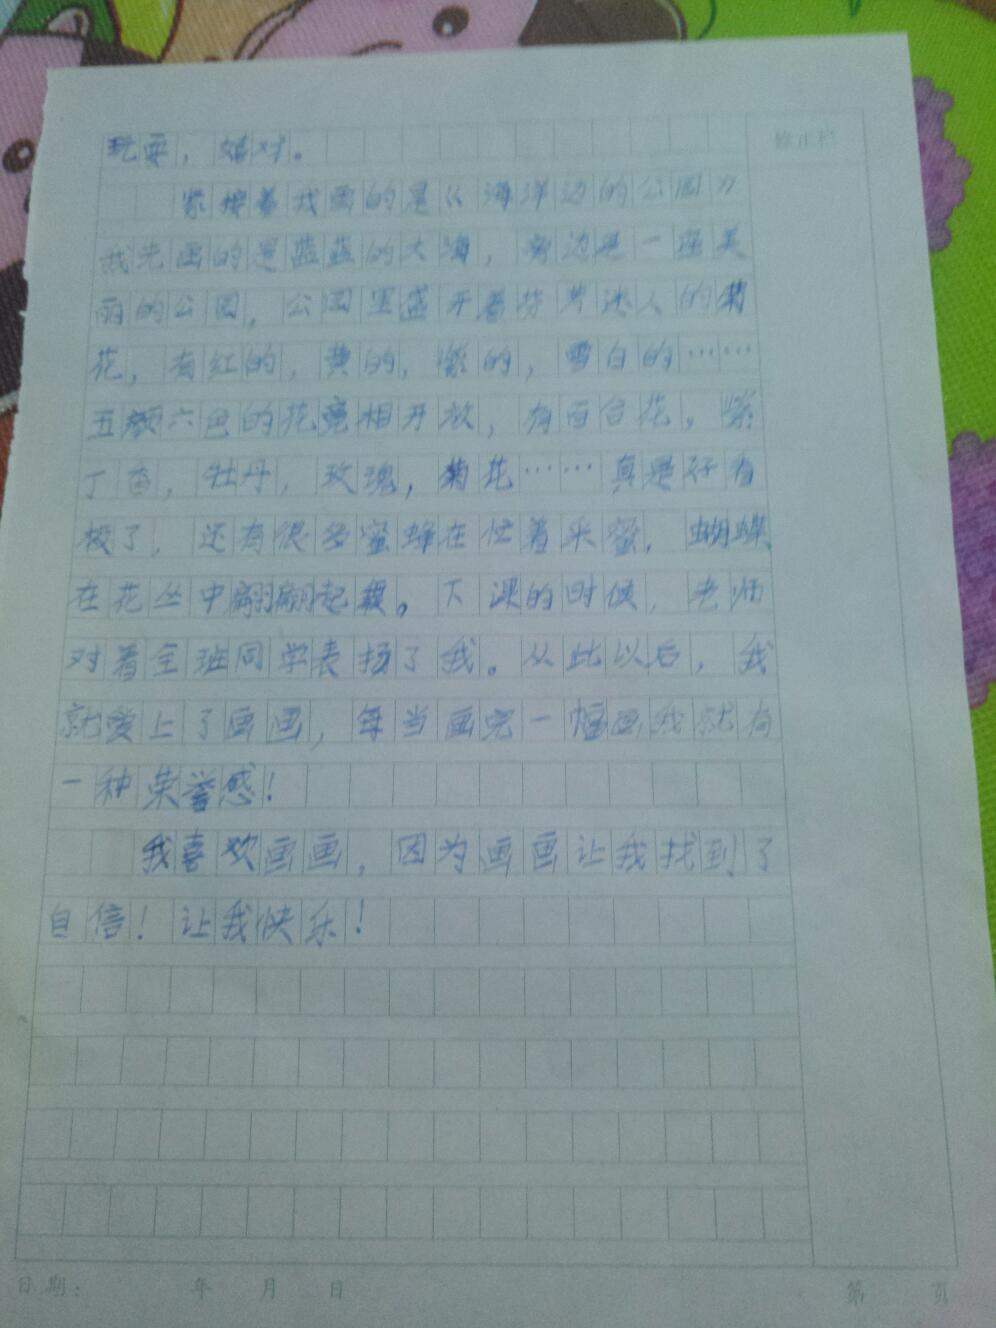 修正栏
玩耍，嬉对。
紧接着我画的是《海洋边的公园》
我先画的是蓝蓝的大海，旁边是一座美
丽的公园，公园里盛开着芬芳迷人的菊
花，有红的，黄的，紫的，雪白的……
五颜六色的花竞相开放，有百合花，紫
丁香，牡丹，玫瑰，菊花……真是好看
极了，还有很多蜜蜂在忙着采蜜，蝴蝶
在花丛中翩翩起舞。下课的时候，老师
对着全班同学表扬了我。从此以后，我
就爱上了画画，每当画完一幅画我就有
一种荣誉感！
我喜欢画画，因为画画让我找到了
自信！让我快乐！
日期： 年 月 日 第 页